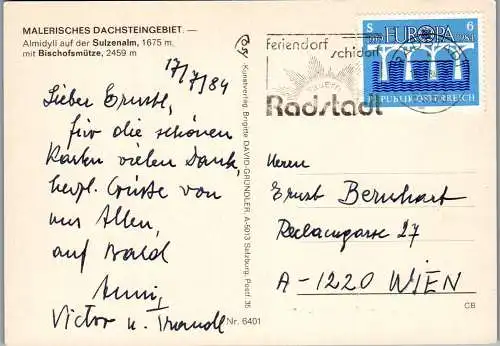 MALERISCHES DACHSTEINGEBIET. —
Almidyll auf der Sulzenalm, 1675 m,
mit Bischofsmütze, 2459 m
17/7/84
Lieber Ernstl,
für die schönen
Karten vielen Dank,
herzl. Grüße von
uns Allen,
auf bald
Anni,
Victor u. Traudl
Kunstverlag Brigitte DAVID-GRÜNDLER, A-5013 Salzburg, Postf. 35
Nr. 6401
feriendorf
schidorf
Radstadt
S EUROPA 6
1959 1984
REPUBLIK ÖSTERREICH
Herrn
Ernst Bernhart
Reclamgasse 27
A-1220 WIEN
CB